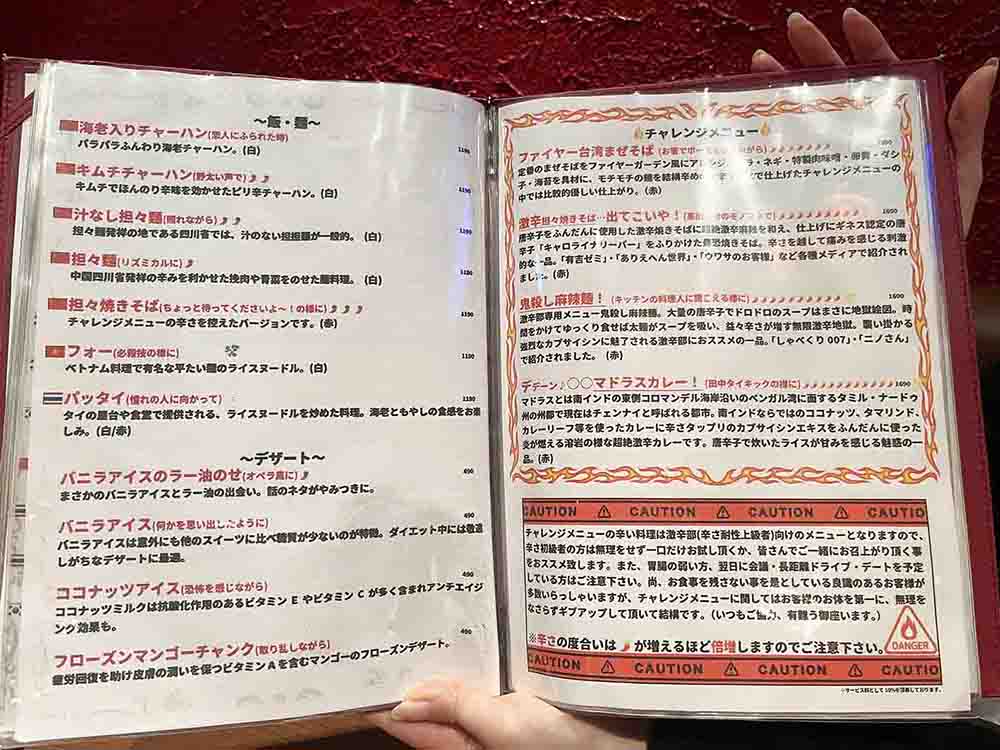 〜飯・麺〜
海老入りチャーハン(恋人にふられた時)
パラパラふんわり海老チャーハン。(白)
1190
キムチチャーハン(野太い声で)
キムチでほんのり辛味を効かせたピリ辛チャーハン。(白)
1190
汁なし担々麺(照れながら)
担々麺発祥の地である四川省では、汁のない担担麺が一般的。 (白)
1190
担々麺(リズミカルに)
中国四川省発祥の辛みを利かせた挽肉や青菜をのせた麺料理。(白)
1190
担々焼きそば(ちょっと待ってくださいよ〜!の様に)
チャレンジメニューの辛さを控えたバージョンです。(赤)
1190
フォー(必殺技の様に)
ベトナム料理で有名な平たい麺のライスヌードル。(白)
1190
パッタイ(憧れの人に向かって)
1190
タイの屋台や食堂で提供される、ライスヌードルを炒めた料理。海老ともやしの食感をお楽
しみ。(白/赤)
〜デザート〜
バニラアイスのラー油のせ(オペラ風に)
490
まさかのバニラアイスとラー油の出会い。話のネタがやみつきに。
バニラアイス(何かを思い出したように)
490
バニラアイスは意外にも他のスイーツに比べ糖質が少ないのが特徴。ダイエット中には敬遠
しがちなデザートに最適。
ココナッツアイス(恐怖を感じながら)
490
ココナッツミルクは抗酸化作用のあるビタミン E やビタミン C が多く含まれアンチエイジ
ング効果も。
フローズンマンゴーチャンク(取り乱しながら)
490
疲労回復を助け皮膚の潤いを保つビタミン A を含むマンゴーのフローズンデザート。
チャレンジメニュー
ファイヤー台湾まぜそば
定番のまぜそばをファイヤーガーデン風に ネギ・特製肉味噌・卵黄・ダシ
子・海苔を具材に、モチモチの麺を結構辛め で仕上げたチャレンジメニューの
中では比較的優しい仕上がり。(赤)
激辛担々焼きそば…出てこいや!
1690
唐辛子をふんだんに使用した激辛焼きそばに超絶激辛麻辣を和え、仕上げにギネス認定の唐
辛子「キャロライナリーパー」をふりかけた最恐焼きそば。辛さを越して痛みを感じる刺激
的な一品。「有吉ゼミ」・「ありえへん世界」・「ウワサのお客様」など各種メディアで紹介され
ました。(赤)
鬼殺し麻辣麺! (キッチンの料理人に聞こえる様に)
1690
激辛部専用メニュー鬼殺し麻辣麺。大量の唐辛子でドロドロのスープはまさに地獄絵図。時
間をかけてゆっくり食せば太麺がスープを吸い、益々辛さが増す無限激辛地獄。襲い掛かる
強烈なカプサイシンに魅了される激辛部におススメの一品。「しゃべくり 007」・「ニノさん」
で紹介されました。 (赤)
デデーン♪〇〇マドラスカレー! (田中タイキックの様に)
1690
マドラスとは南インドの東側コロマンデル海岸沿いのベンガル湾に面するタミル・ナードゥ
州の州都で現在はチェンナイと呼ばれる都市。南インドならではのココナッツ、タマリンド、
カレーリーフ等を使ったカレーに辛さタップリのカプサイシンエキスをふんだんに使った
炎が燃える溶岩の様な超絶激辛カレーです。唐辛子で炊いたライスが甘みを感じる魅惑の一
品。(赤)
CAUTION CAUTION CAUTION CAUTIO
チャレンジメニューの辛い料理は激辛部(辛さ耐性上級者)向けのメニューとなりますので、
辛さ初級者の方は無理をせず一口だけお試し頂くか、皆さんでご一緒にお召上がり頂く事
をおススメ致します。また、胃腸の弱い方、翌日に会議・長距離ドライブ・デートを予定
している方はご注意下さい。尚、お食事を残さない事を是としている良識のあるお客様が
多数いらっしゃいますが、チャレンジメニューに関してはお客様のお体を第一に、無理を
なさらずギブアップして頂いて結構です。(いつもご協力、有難う御座います。)
※辛さの度合いは が増えるほど倍増しますのでご注意下さい。
DANGER
CAUTION CAUTION CAUTION CAUTIO
※サービス料として 10%を頂戴しております。